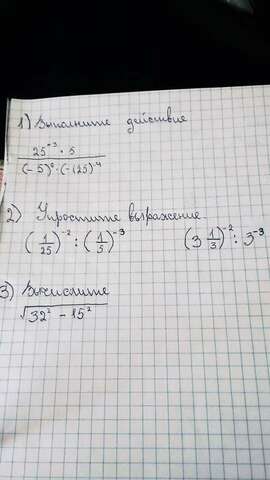 1) Выполните действия
25⁻³ · 5
(-5)⁰ · (-125)⁻⁴
2) Упростите выражение.
(1/25)⁻² : (1/5)⁻³ (3 1/3)⁻² : 3⁻³
3) Вычислите
√32² - 15²